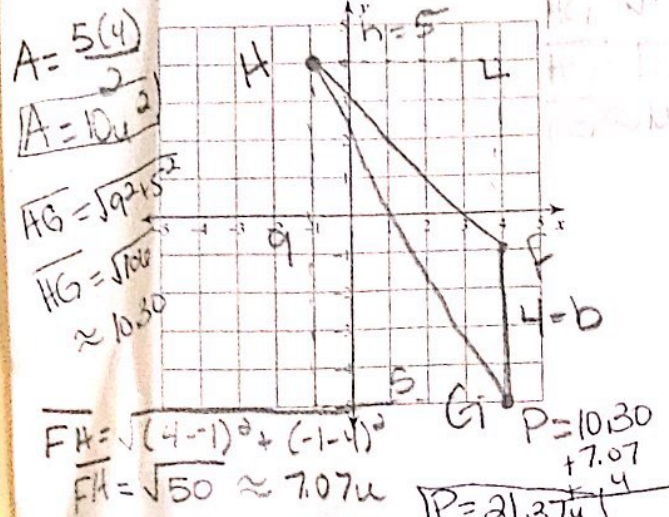 A = 5(4)/2
A = 10u²
HG = √9²+5²
HG = √106
≈ 10.30
y
h = 5
H
-5 -4 -3 -1 2 4 5 x
9
F
4 = b
5
G
FH = √(4--1)² + (-1-4)²
FH = √50 ≈ 7.07u
P = 10.30
+7.07
4
P = 21.37u